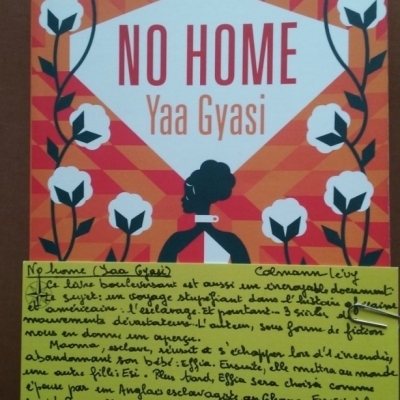 NO HOME
Yaa Gyasi
No home (Yaa Gyasi) Colmann Lévy
Ce livre bouleversant est aussi un incroyable document
Le sujet: un voyage stupéfiant dans l'histoire
et américaine: l'esclavage. Et pourtant... 3 siècles de
mouvements dévastateurs. L'auteur, sous forme de fiction
nous en donne un aperçu.
Maoma, esclave, réussit à s'échapper lors d'1 incendie,
abandonnant son bébé: Effia. Ensuite, elle mettra au monde
une autre fille: Esi. Plus tard, Effia sera choisie comme
épouse par un Anglais esclavagiste au Ghana.